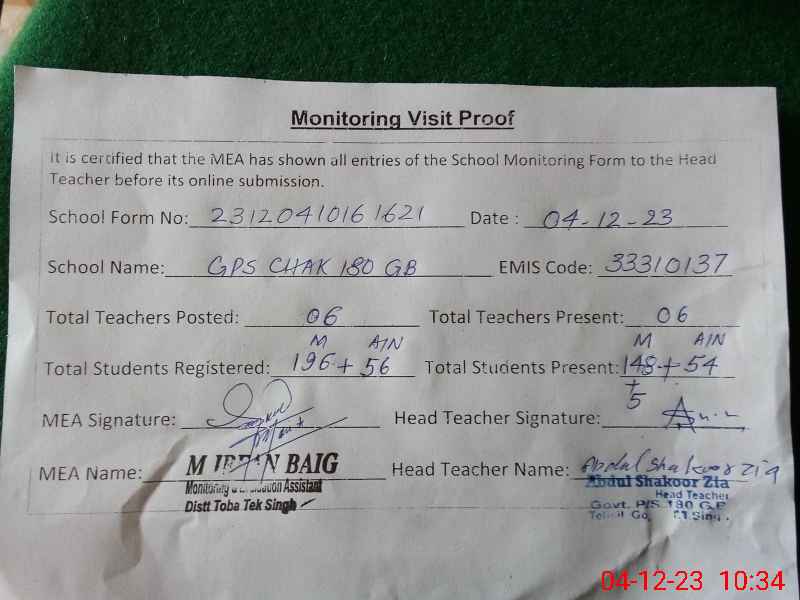 Monitoring Visit Proof
It is certified that the MEA has shown all entries of the School Monitoring Form to the Head
Teacher before its online submission.
School Form No: 23120410161621 Date : 04-12-23
School Name: GPS CHAK 180 GB EMIS Code: 33310137
Total Teachers Posted: 06 Total Teachers Present: 06
M AIN M AIN
Total Students Registered: 196 + 56 Total Students Present: 148 + 54
+ 5
MEA Signature: Head Teacher Signature:
MEA Name: M IRFAN BAIG Head Teacher Name: Abdul Shakoor Zia
Monitoring & Evaluation Assistant Abdul Shakoor Zia
Distt Toba Tek Singh Head Teacher
Govt. P/S 180 G.B
04-12-23 10:34